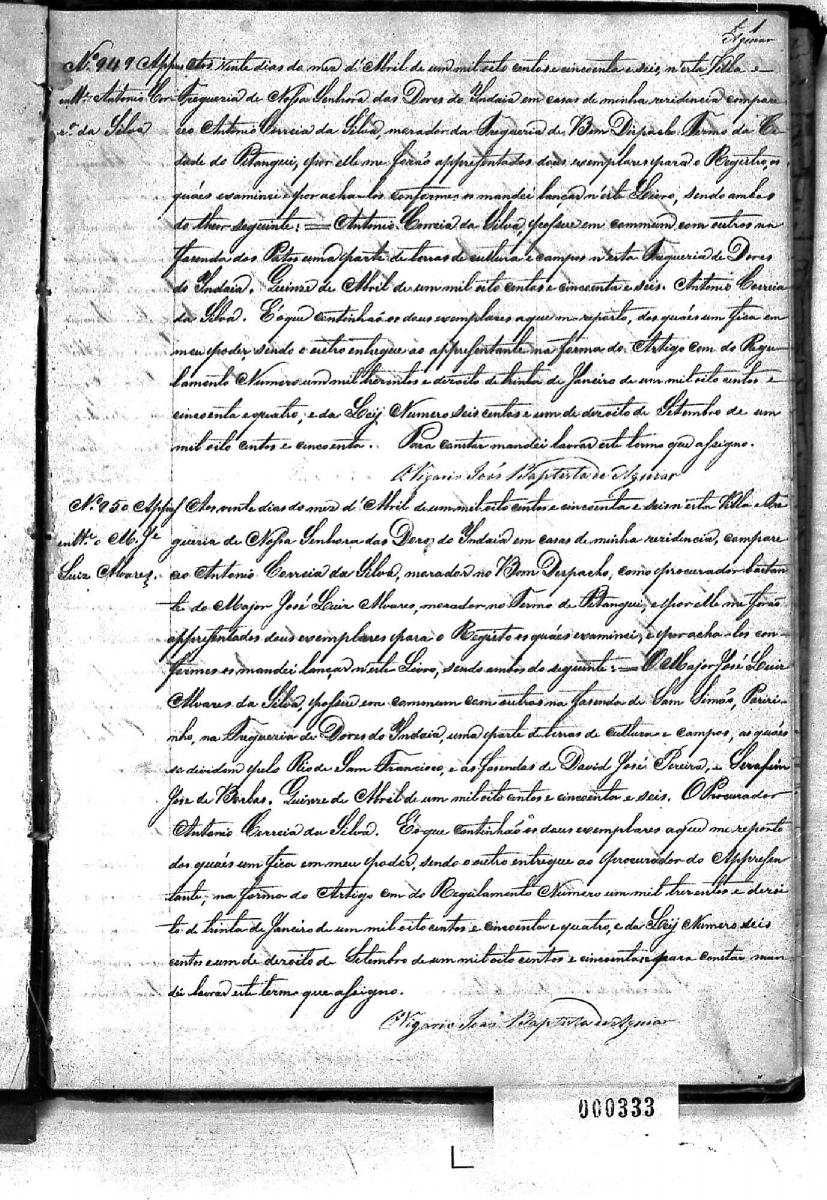 Aguiar
Nº 949 Appres
entte Antonio Cor
ra da Silva
Aos vinte dias do mez d'Abril de um mil oito centos e cincoenta e seis, n'esta Villa e
Fregueria de Nossa Senhora das Dores do Indaiá em casas de minha rezidencia compare
ceo Antonio Correia da Silva, morador da Fregueria de Bom Dispacho Termo da Ci
dade do Pitangui, e por elle me forão appresentados dous exemplares para o Registro, os
quáes examinei e por achalos conformes os mandei lançar n'este Livro, sendo ambos
do theor seguinte: = Antonio Correia da Silva, possue em commum com outros na
fasenda dos Patos uma parte de terras de cultura e campos n'esta Fregueria de Dores
do Indaiá. Quinze de Abril de um mil oito centos e cincoenta e seis. Antonio Correia
da Silva. E o que continhão os dous exemplares a que me reporto, dos quáes um fica em
meu poder sendo o outro entregue ao appresentante na forma do Artigo cem do Regu
lamento Numero um mil trezentos e dezoito de trinta de Janeiro de um mil oito centos e
cincoenta e quatro, e da Leij Numero seis centos e um de dezoito de Setembro de um
mil oito centos e cincoenta. Para constar mandei lavrar este termo que assigno.
O Vigario João Baptista de Aguiar
Nº 950 Appres
entte o M. Je
Luiz Alvares.
Aos vinte dias do mez d'Abril de um mil oito centos e cincoenta e seis n'esta Villa e Fre
gueria de Nossa Senhora das Dores do Indaiá em casas de minha rezidencia, compare
ceo Antonio Correia da Silva, morador no Bom Despacho, como procurador bastan
te do Major José Luiz Alvares, morador no Termo de Pitangui, e por elle me forão
appresentados dous exemplares para o Registo os quáes examinei, e por achalos con
formes os mandei lançar n'este Livro, sendo ambos do seguinte: = O Major José Luiz
Alvares da Silva, possue em commum com outros na fasenda de Sam Simão,
na Fregueria de Dores do Indaiá, uma parte de terras de cultura e campos, as quáes
se dividem pelo Rio de Sam Francisco, e as fasendas de David José Pereira, e Serafim
Jose de Borbas. Quinze de Abril de um mil oito centos e cincoenta e seis. O Procurador
Antonio Correia da Silva. E o que continhão os dous exemplares a que me reporto
dos quáes um fica em meu poder, sendo o outro entregue ao procurador do Appresen
tante, na forma do Artigo cem do Regulamento Numero um mil trezentos e dezoi
to de trinta de Janeiro de um mil oito centos e cincoenta e quatro, e da Leij Numero seis
centos e um de dezoito de Setembro de um mil oito centos e cincoenta e para constar man
dei lavrar este termo que assigno.
O Vigario João Baptista de Aguiar
000333
L